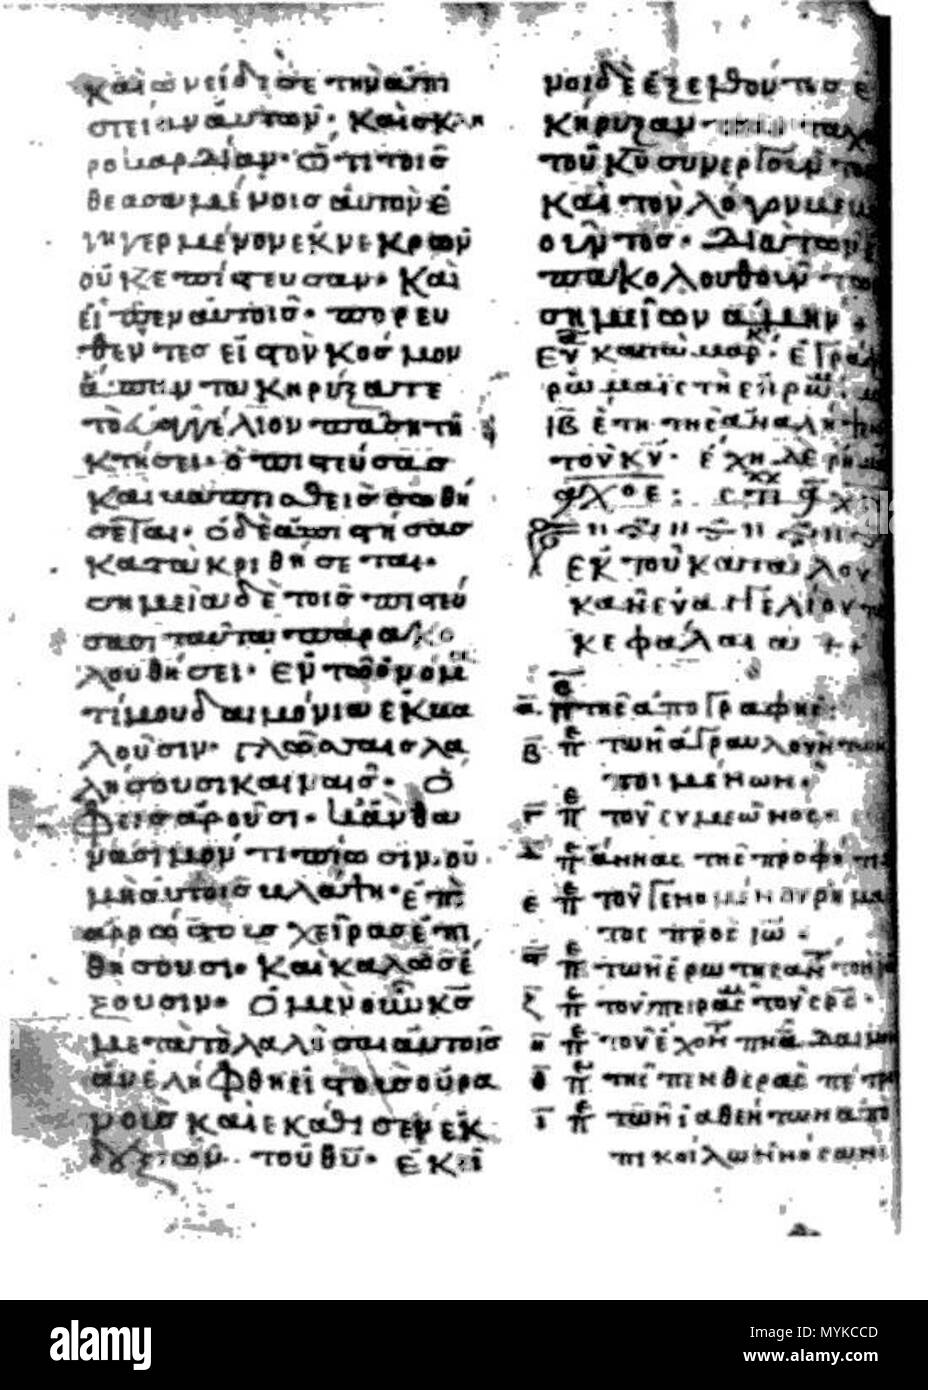 καὶ ὠνείδισε τὴν ἀπι
στείαν αὐτῶν· καὶ σκλη
ροκαρδίαν· ὅτι τοῖς
θεασαμένοις αὐτὸν ἐ
γηγερμένον ἐκ νεκρῶν
οὐκ ἐπίστευσαν· καὶ
εἶπεν αὐτοῖς· πορευ
θέντες εἰς τὸν κόσμον
ἅπαντα κηρύξατε
τὸ εὐαγγέλιον πάσῃ τῇ
κτήσει· ὁ πιστεύσας
καὶ βαπτισθεὶς σωθή
σεται· ὁ δὲ ἀπιστήσας
κατακριθήσεται·
σημεῖα δὲ τοῖς πιστεύ
σασι ταῦτα παρακο
λουθήσει· ἐν τῷ ὀνόμα
τί μου δαιμόνια ἐκβα
λοῦσιν· γλώσσαις λα
λήσουσι καιναῖς· ὄ
φεις ἀροῦσι· κἂν θα
νάσιμόν τι πίωσιν, οὐ
μὴ αὐτοὺς βλάψῃ· ἐπὶ
ἀρρώστους χεῖρας ἐπι
θήσουσι· καὶ καλῶς ἕ
ξουσιν· ὁ μὲν οὖν κς
μετὰ τὸ λαλῆσαι αὐτοῖς
ἀνελήφθη εἰς τοὺς οὐρα
νοὺς καὶ ἐκάθισεν ἐκ
δεξιῶν τοῦ θυ· ἐκεῖ
νοι δὲ ἐξελθόντες ἐ
κήρυξαν πανταχοῦ
τοῦ κυ συνεργοῦντος
καὶ τὸν λόγον βεβαι
οῦντος· διὰ τῶν ἐ
πακολουθούντων
σημείων ἀμήν +
ιβ ἔτη τῆς ἀναλήψεως
τοῦ κυ·
ἐκ τοῦ κατὰ λου
κᾶν εὐαγγελίου τὰ
κεφάλαια ++
α. περὶ τῆς ἀπογραφῆς·
β περὶ τῶν ἀγραυλούντων
ποιμένων·
γ περὶ τοῦ συμεῶνος·
δ περὶ ἄννας τῆς προφήτιδος
ε περὶ τοῦ γενομένου ῥήμα
τος πρὸς ιω·
ϛ περὶ τῶν ἐρωτησάντων τὸν ιω
ζ περὶ τοῦ πειρασμοῦ τοῦ σρς·
η περὶ τοῦ ἔχοντος πνα δαιμονίου
θ περὶ τῆς πενθερᾶς πέτρου
ι περὶ τῶν ἰαθέντων ἀπὸ
ποικίλων νόσων
alamy
Image ID: MYKCCD
www.alamy.com